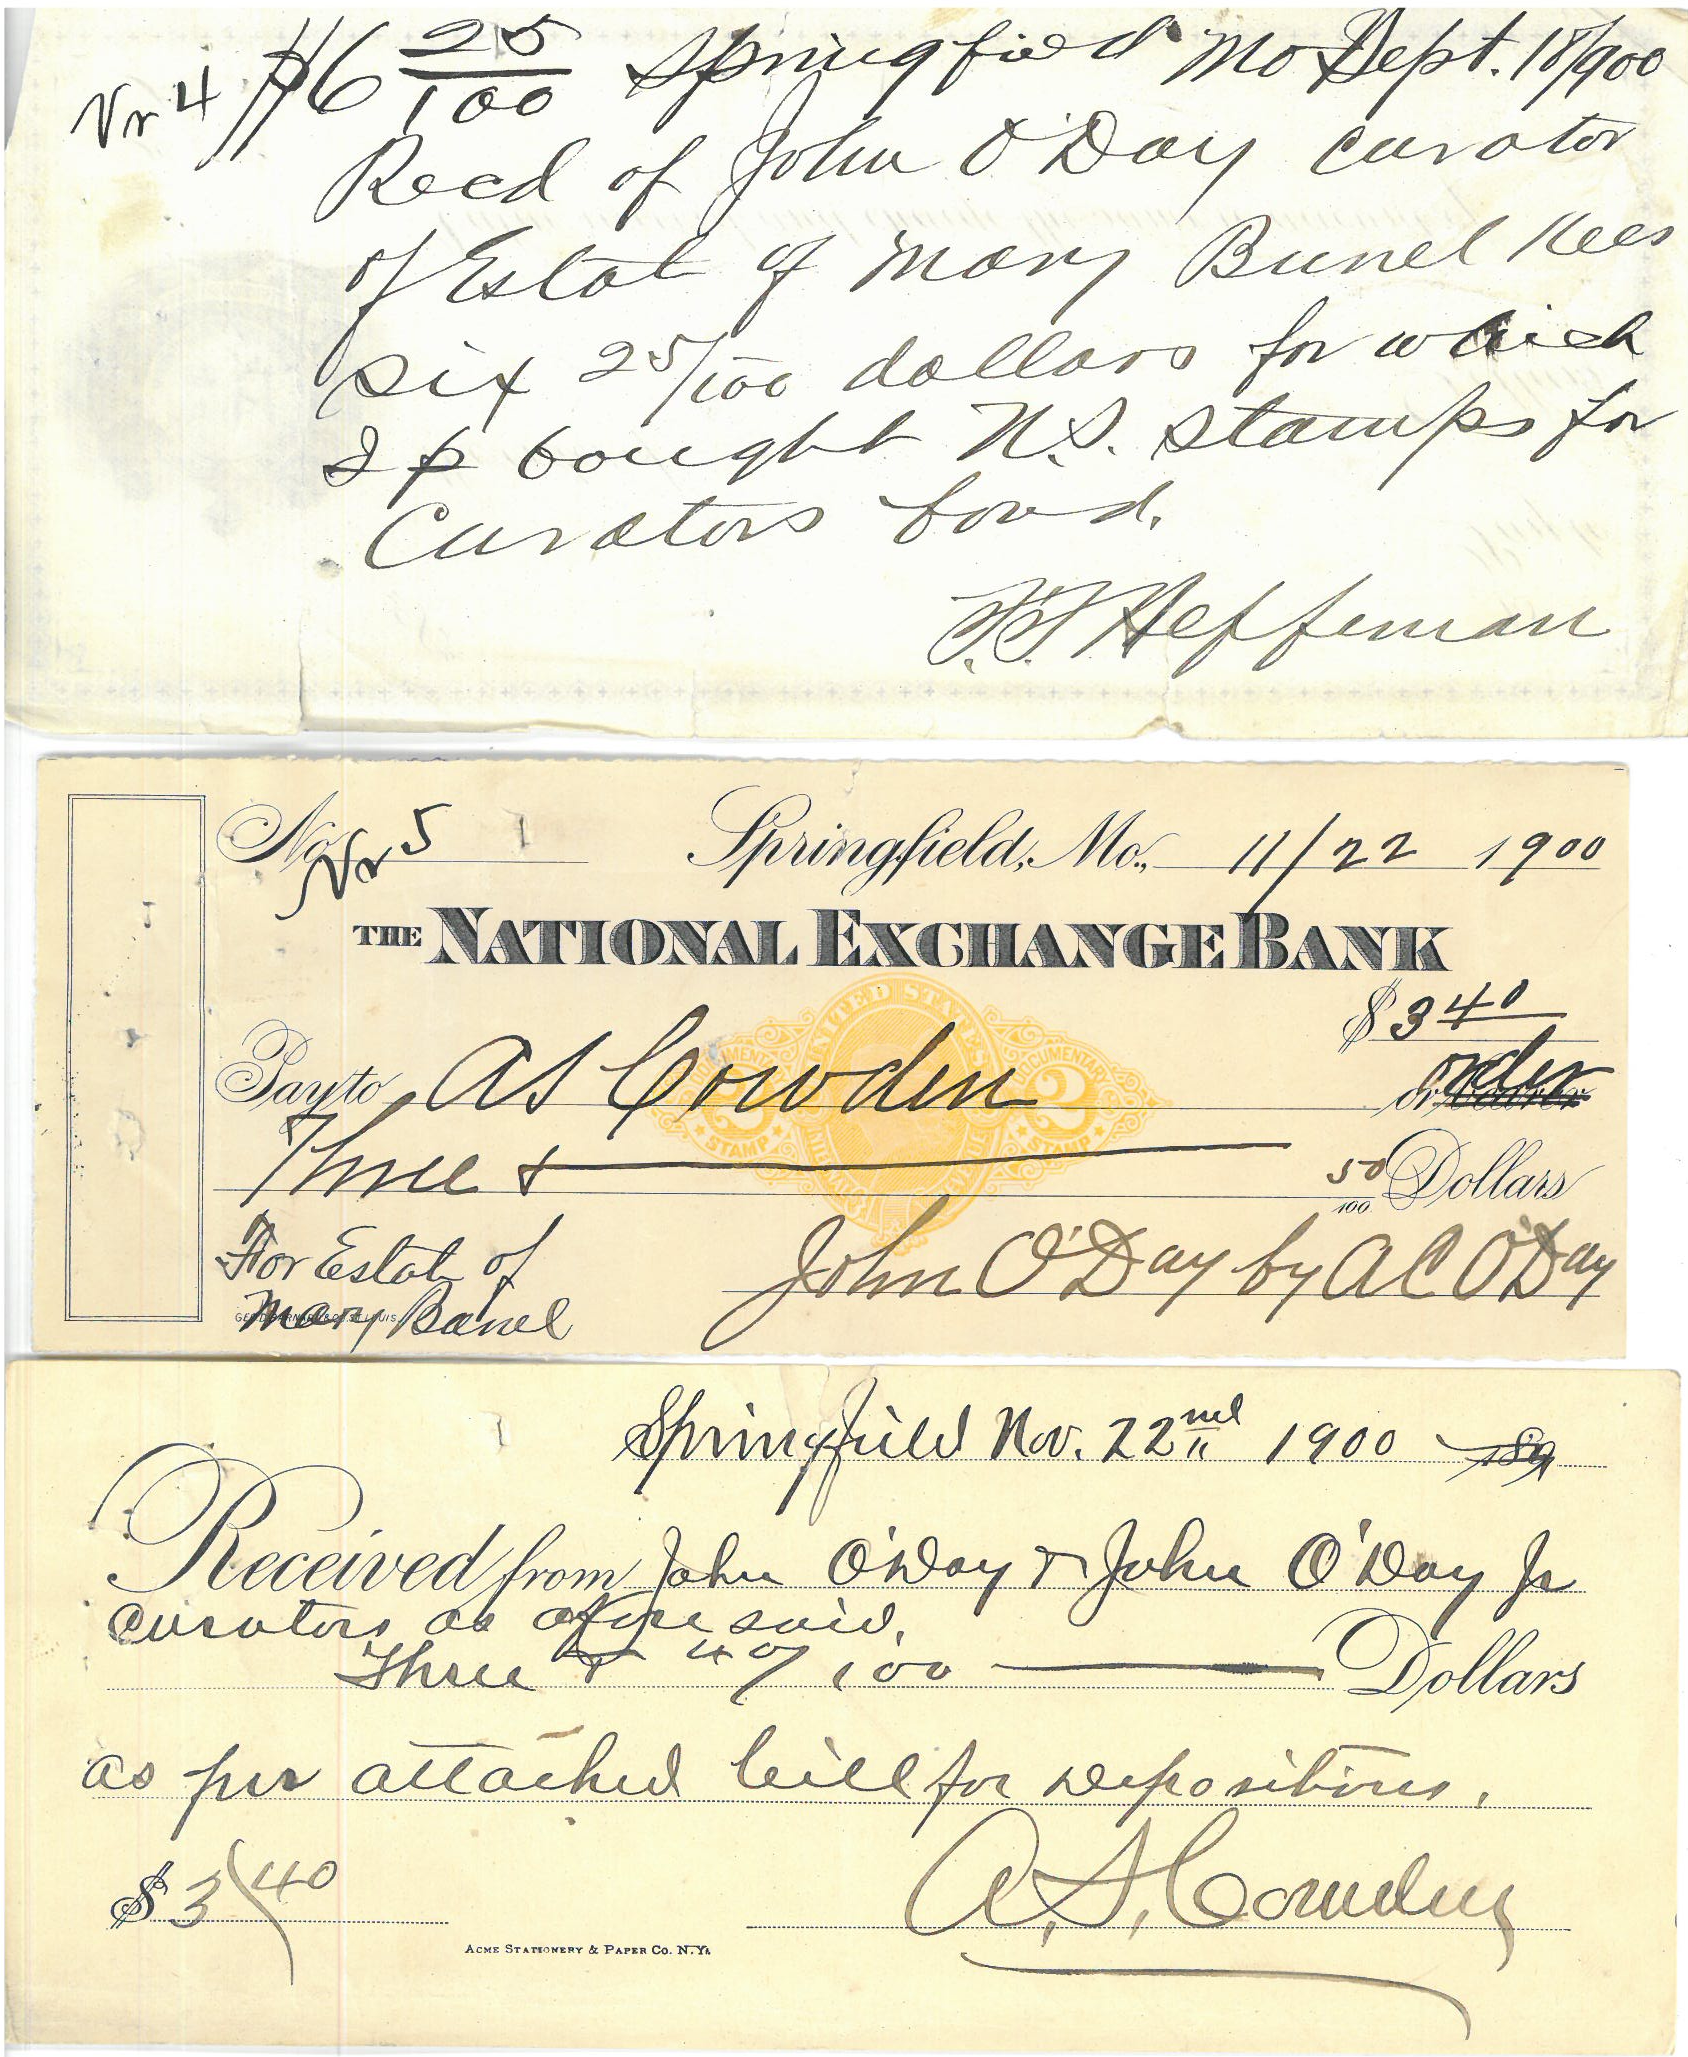 Vr 4 $6 25/100 Springfield Mo Sept. 18/900
Recd of John O'Day curator
of Estat of Mary Bunel
six 25/100 dollars for which
I p bought U.S. stamps for
Curators bond.
Heffernan
No Vr 5 Springfield, Mo., 11/22 1900
THE NATIONAL EXCHANGE BANK
$ 3 40
Pay to A S Cowden or bearer order
UNITED STATES
DOCUMENTARY DOCUMENTARY
2 2
STAMP STAMP
INTERNAL REVENUE
Three & 50/100 Dollars
For Estat of
Mary Banel
John O'Day by A C O'Day
Springfield Nov. 22nd 1900 189
Received from John O'Day & John O'Day Jr
curators as afore said,
Three & 40/100 Dollars
as per attached bill for depositions.
$ 3/40 A. S. Cowden
ACME STATIONERY & PAPER CO. N.Y.